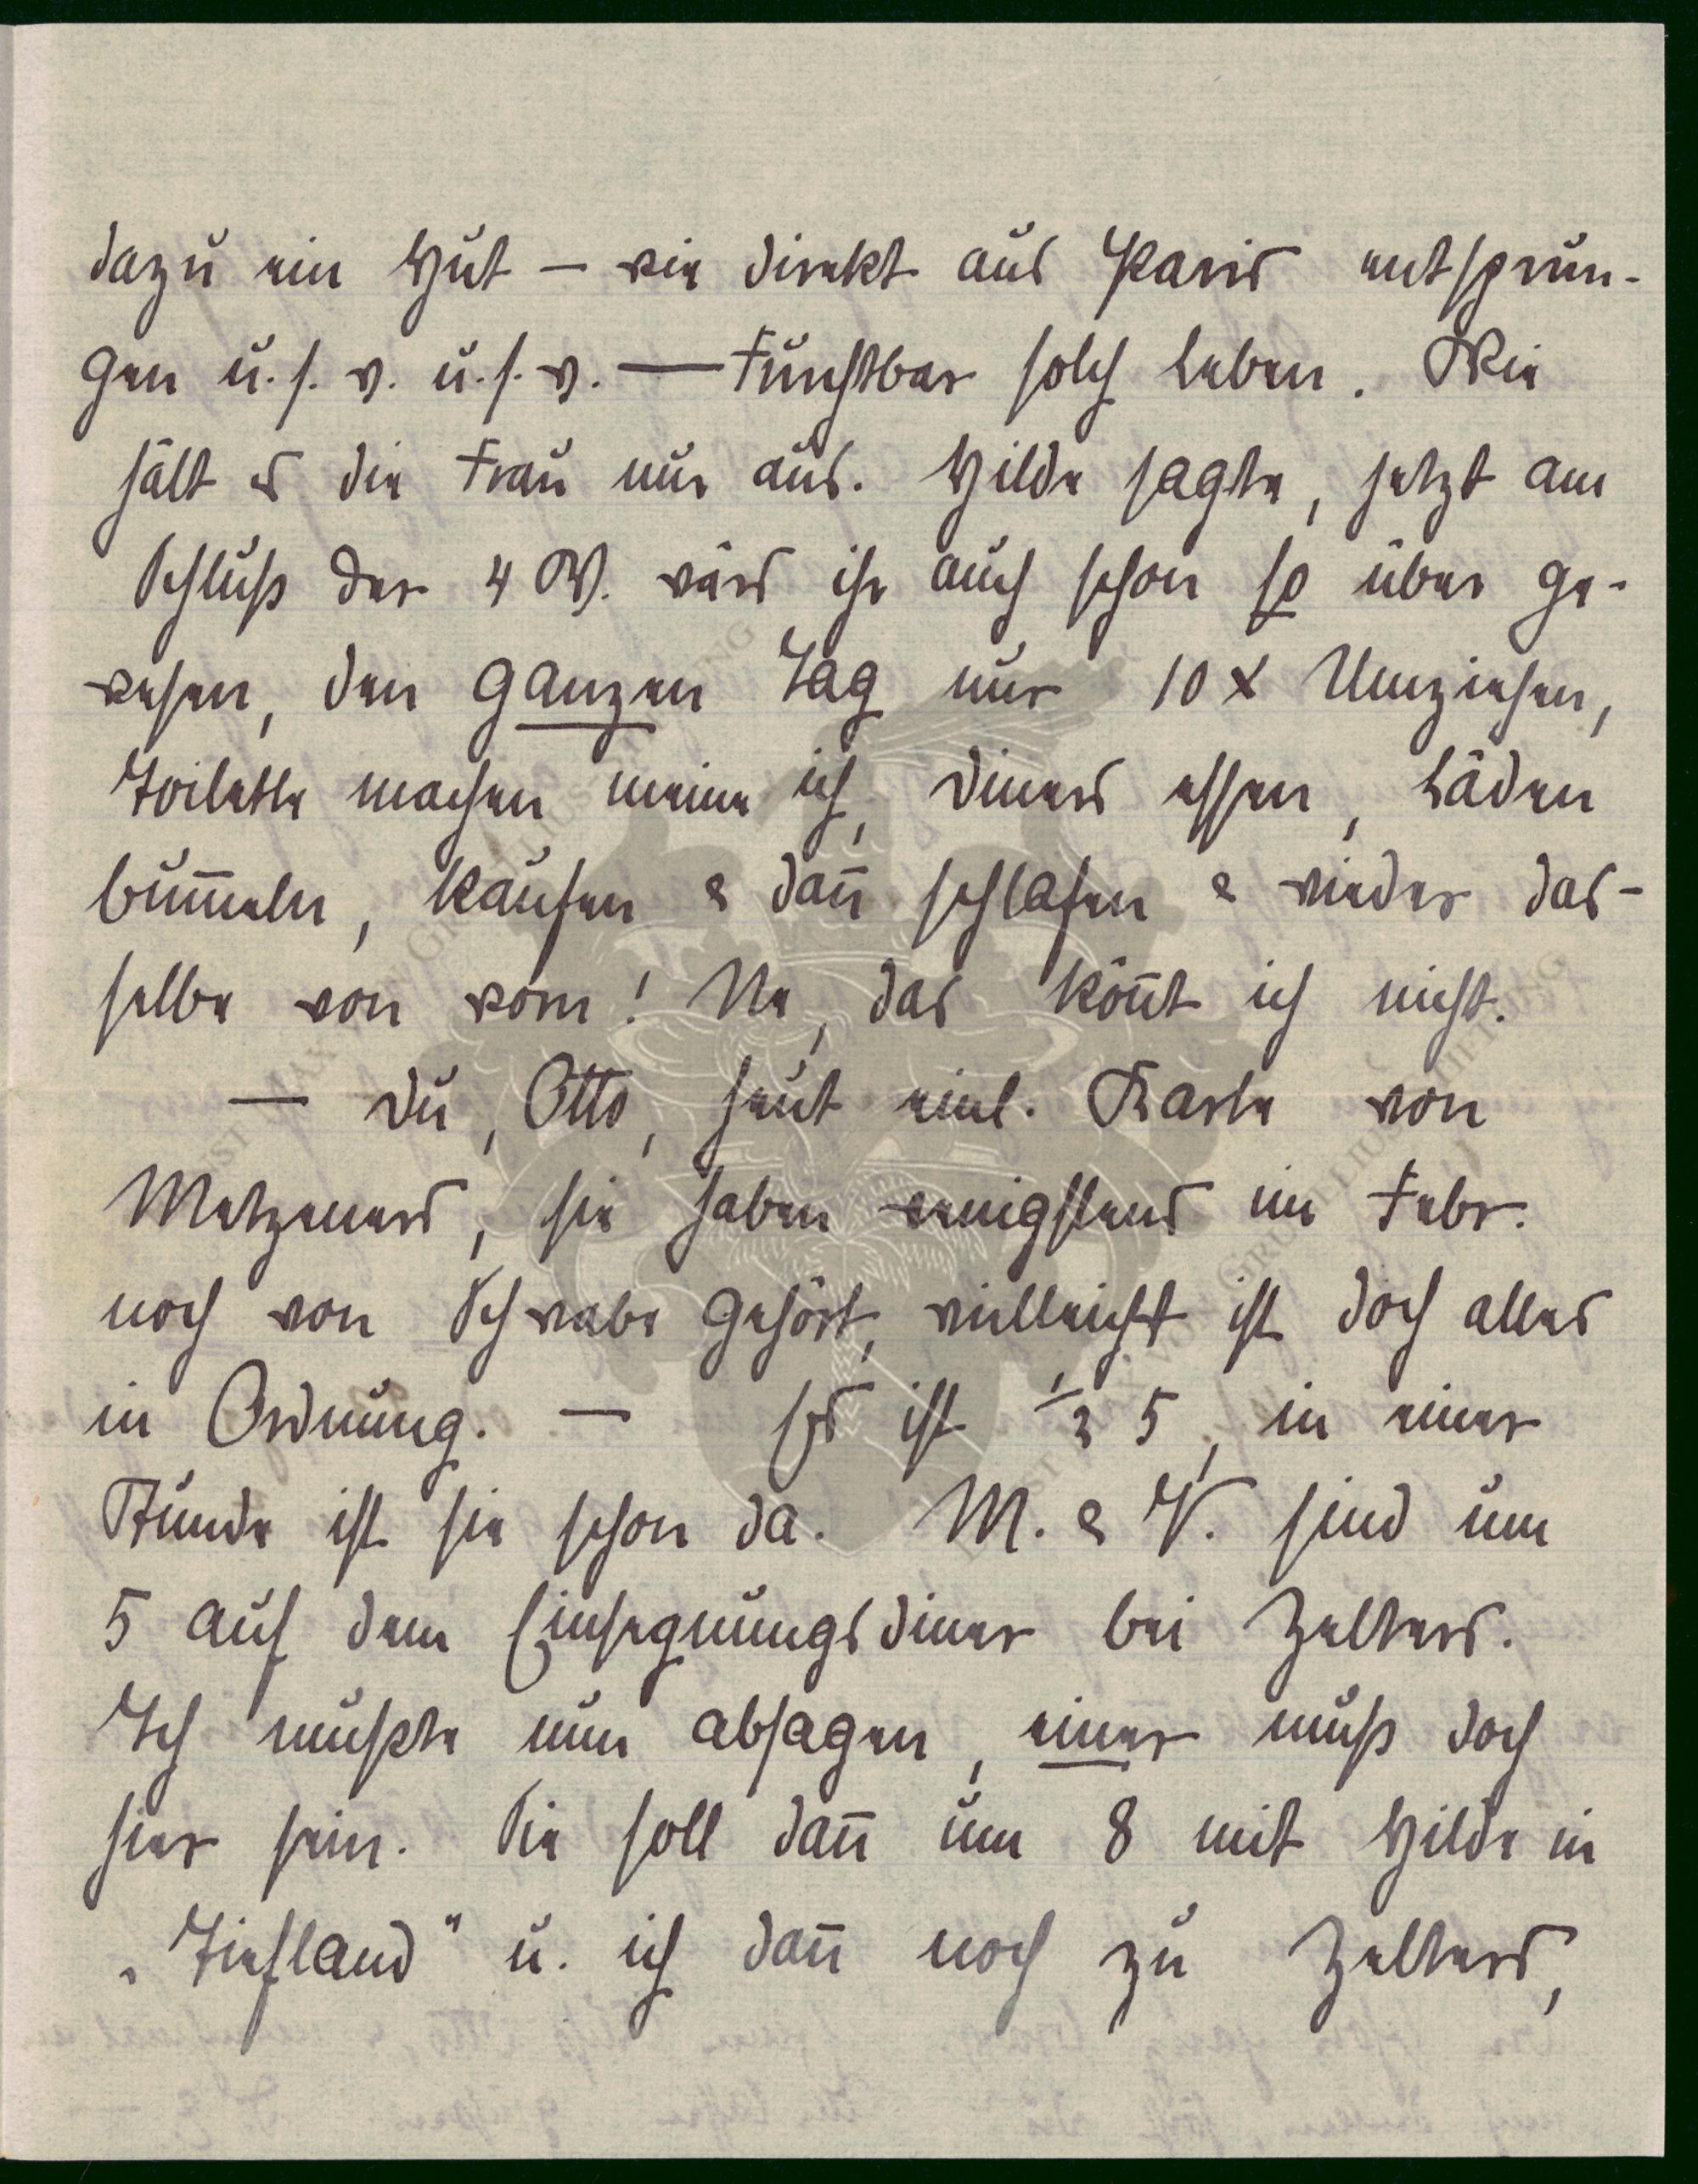 dazu ein Hut – wie direkt aus Paris entsprun-
gen u. s. w. u. s. w. — Furchtbar solch Leben. Wie
hält es die Frau nur aus. Hilde sagte, jetzt am
Schluß der 4 W. wärs ihr auch schon so über ge-
wesen, den ganzen Tag nur 10 x Umziehen,
Toilette machen meine ich, Diners essen, Läden
bum̅eln, kaufen & dan̅ schlafen & wieder das-
selbe von vorn! Ne, das kön̅t ich nicht.
— Du, Otto, heut eine Karte von
Metzeners, sie haben wenigstens im Febr.
noch von Schwabe gehört, vielleicht ist doch alles
in Ordnung. — Es ist ½ 5, in einer
Stunde ist sie schon da. M. & V. sind um
5 auf dem Einsegnungsdiner bei Zelters.
Ich mußte nun absagen, einer muß doch
hier sein. Sie soll dan̅ um 8 mit Hilde in
„Tiefland" u. ich dan̅ noch zu Zelters,